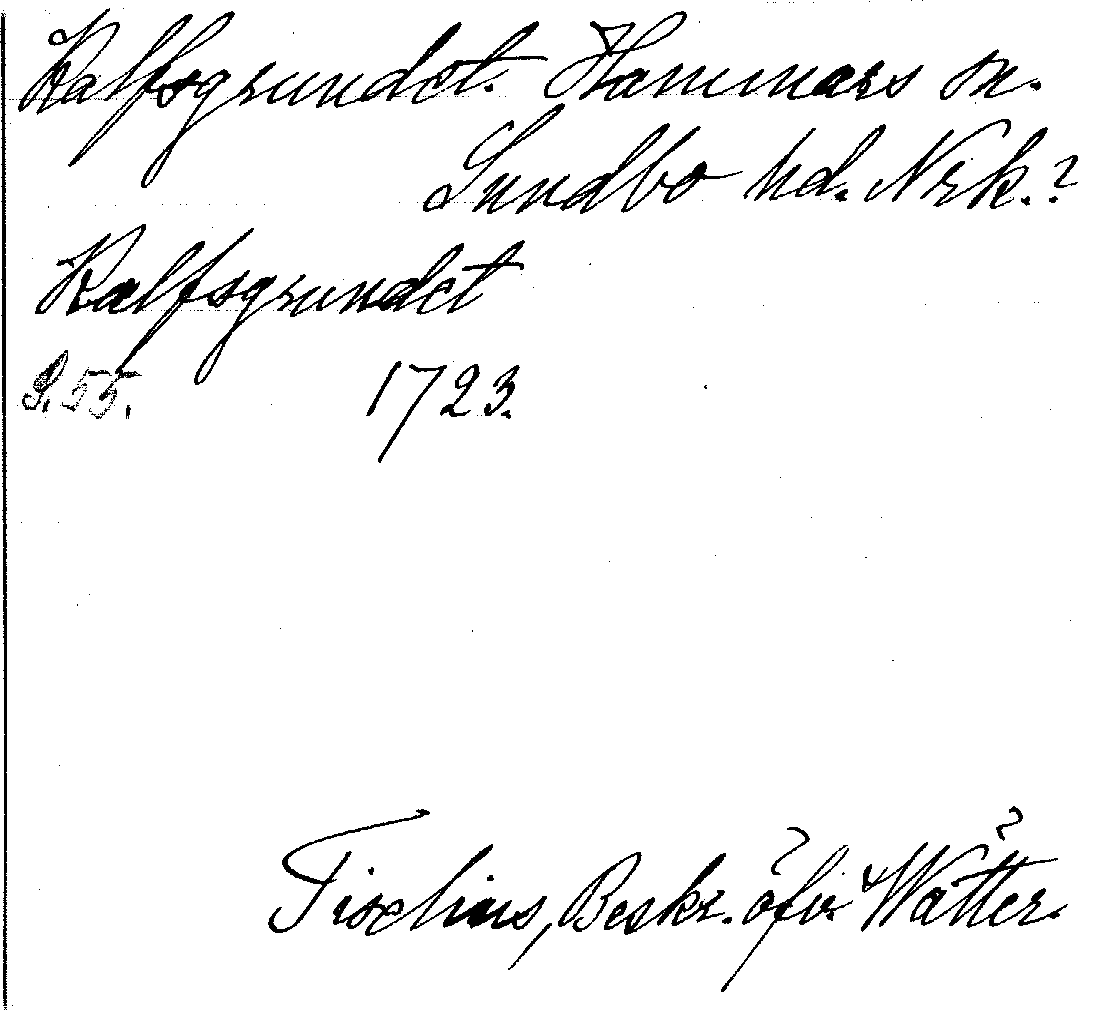 Kalfsgrundet. Hammars sn.
Sundbo hd. Nrk.?
Kalfsgrundet
S. 55. 1723.
Tiselius, Beskr. öfv. Wätter.